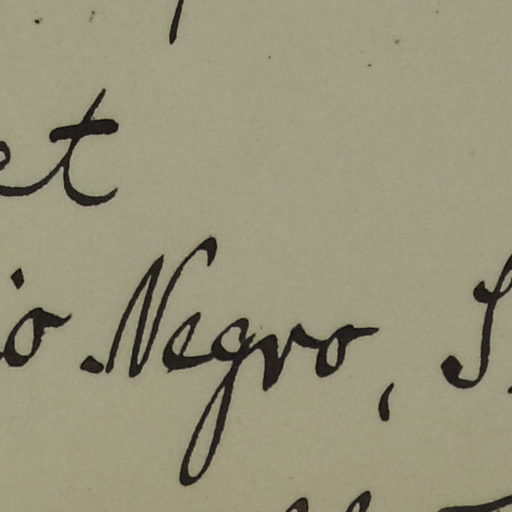 et
io Negro, S